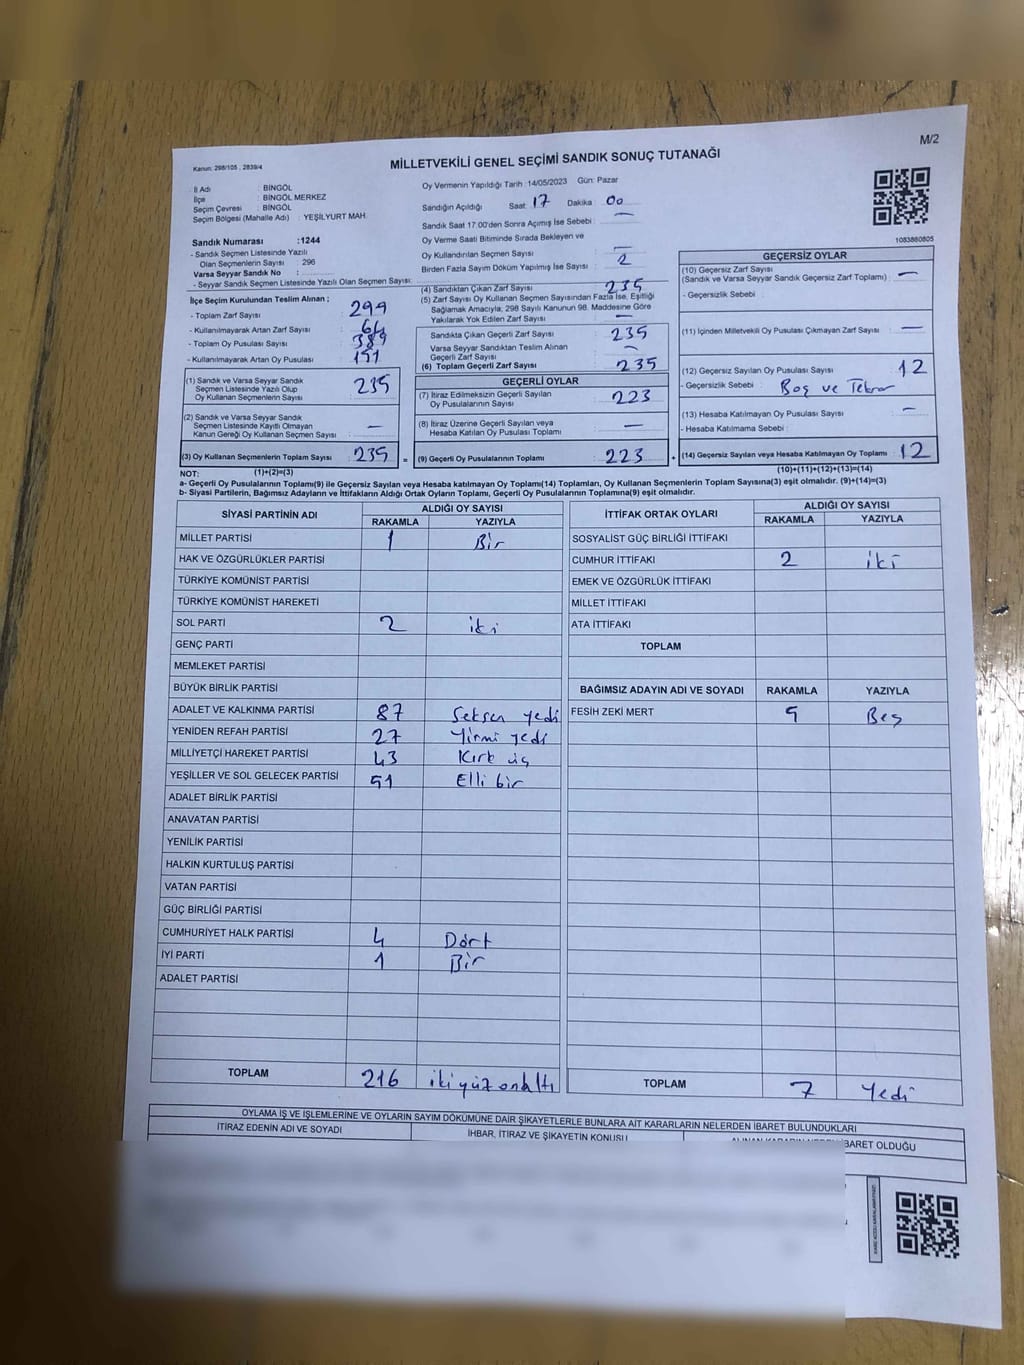 M/2
Kanun: 298/105 , 2839/4
MİLLETVEKİLİ GENEL SEÇİMİ SANDIK SONUÇ TUTANAĞI
İl Adı : BİNGÖL
İlçe : BİNGÖL MERKEZ
Seçim Çevresi : BİNGÖL
Seçim Bölgesi (Mahalle Adı) : YEŞİLYURT MAH.
Sandık Numarası :1244
- Sandık Seçmen Listesinde Yazılı
Olan Seçmenlerin Sayısı : 296
Varsa Seyyar Sandık No :
- Seyyar Sandık Seçmen Listesinde Yazılı Olan Seçmen Sayısı:
Oy Vermenin Yapıldığı Tarih :14/05/2023 Gün: Pazar
Sandığın Açıldığı Saat : 17 Dakika : 00
Sandık Saat 17.00'den Sonra Açımış İse Sebebi : —
Oy Verme Saati Bitiminde Sırada Bekleyen ve
Oy Kullandırılan Seçmen Sayısı : —
Birden Fazla Sayım Döküm Yapılmış İse Sayısı : 2
1083880805
İlçe Seçim Kurulundan Teslim Alınan ;
- Toplam Zarf Sayısı : 299
- Kullanılmayarak Artan Zarf Sayısı : 64
- Toplam Oy Pusulası Sayısı : 389
- Kullanılmayarak Artan Oy Pusulası : 151
(1) Sandık ve Varsa Seyyar Sandık
Seçmen Listesinde Yazılı Olup
Oy Kullanan Seçmenlerin Sayısı : 235
(2) Sandık ve Varsa Seyyar Sandık
Seçmen Listesinde Kayıtlı Olmayan
Kanun Gereği Oy Kullanan Seçmen Sayısı : —
(3) Oy Kullanan Seçmenlerin Toplam Sayısı : 235 =
(4) Sandıktan Çıkan Zarf Sayısı : 235
(5) Zarf Sayısı Oy Kullanan Seçmen Sayısından Fazla İse, Eşitliği
Sağlamak Amacıyla; 298 Sayılı Kanunun 98. Maddesine Göre
Yakılarak Yok Edilen Zarf Sayısı : —
Sandıkta Çıkan Geçerli Zarf Sayısı : 235
Varsa Seyyar Sandıktan Teslim Alınan
Geçerli Zarf Sayısı : —
(6) Toplam Geçerli Zarf Sayısı : 235
GEÇERLİ OYLAR
(7) İtiraz Edilmeksizin Geçerli Sayılan
Oy Pusulalarının Sayısı : 223
(8) İtiraz Üzerine Geçerli Sayılan veya
Hesaba Katılan Oy Pusulası Toplamı : —
(9) Geçerli Oy Pusulalarının Toplamı : 223 +
GEÇERSİZ OYLAR
(10) Geçersiz Zarf Sayısı
(Sandık ve Varsa Seyyar Sandık Geçersiz Zarf Toplamı) : —
- Geçersizlik Sebebi :
(11) İçinden Milletvekili Oy Pusulası Çıkmayan Zarf Sayısı : —
(12) Geçersiz Sayılan Oy Pusulası Sayısı : 12
- Geçersizlik Sebebi : Boş ve Tekrar
(13) Hesaba Katılmayan Oy Pusulası Sayısı : —
- Hesaba Katılmama Sebebi :
(14) Geçersiz Sayılan veya Hesaba Katılmayan Oy Toplamı : 12
NOT: (1)+(2)=(3) (10)+(11)+(12)+(13)=(14)
a- Geçerli Oy Pusulalarının Toplamı(9) ile Geçersiz Sayılan veya Hesaba katılmayan Oy Toplamı(14) Toplamları, Oy Kullanan Seçmenlerin Toplam Sayısına(3) eşit olmalıdır. (9)+(14)=(3)
b- Siyasi Partilerin, Bağımsız Adayların ve İttifakların Aldığı Ortak Oyların Toplamı, Geçerli Oy Pusulalarının Toplamına(9) eşit olmalıdır.
SİYASİ PARTİNİN ADI ALDIĞI OY SAYISI
RAKAMLA YAZIYLA
MİLLET PARTİSİ 1 Bir
HAK VE ÖZGÜRLÜKLER PARTİSİ
TÜRKİYE KOMÜNİST PARTİSİ
TÜRKİYE KOMÜNİST HAREKETİ
SOL PARTİ 2 iki
GENÇ PARTİ
MEMLEKET PARTİSİ
BÜYÜK BİRLİK PARTİSİ
ADALET VE KALKINMA PARTİSİ 87 Seksen yedi
YENİDEN REFAH PARTİSİ 27 Yirmi yedi
MİLLİYETÇİ HAREKET PARTİSİ 43 Kırk üç
YEŞİLLER VE SOL GELECEK PARTİSİ 51 Elli bir
ADALET BİRLİK PARTİSİ
ANAVATAN PARTİSİ
YENİLİK PARTİSİ
HALKIN KURTULUŞ PARTİSİ
VATAN PARTİSİ
GÜÇ BİRLİĞİ PARTİSİ
CUMHURİYET HALK PARTİSİ 4 Dört
İYİ PARTİ 1 Bir
ADALET PARTİSİ
TOPLAM 216 ikiyüz onaltı
İTTİFAK ORTAK OYLARI ALDIĞI OY SAYISI
RAKAMLA YAZIYLA
SOSYALİST GÜÇ BİRLİĞİ İTTİFAKI
CUMHUR İTTİFAKI 2 iki
EMEK VE ÖZGÜRLÜK İTTİFAKI
MİLLET İTTİFAKI
ATA İTTİFAKI
TOPLAM
BAĞIMSIZ ADAYIN ADI VE SOYADI RAKAMLA YAZIYLA
FESİH ZEKİ MERT 5 Beş
TOPLAM 7 Yedi
OYLAMA İŞ VE İŞLEMLERİNE VE OYLARIN SAYIM DÖKÜMÜNE DAİR ŞİKAYETLERLE BUNLARA AİT KARARLARIN NELERDEN İBARET BULUNDUKLARI
İTİRAZ EDENİN ADI VE SOYADI İHBAR, İTİRAZ VE ŞİKAYETİN KONUSU İBARET OLDUĞU